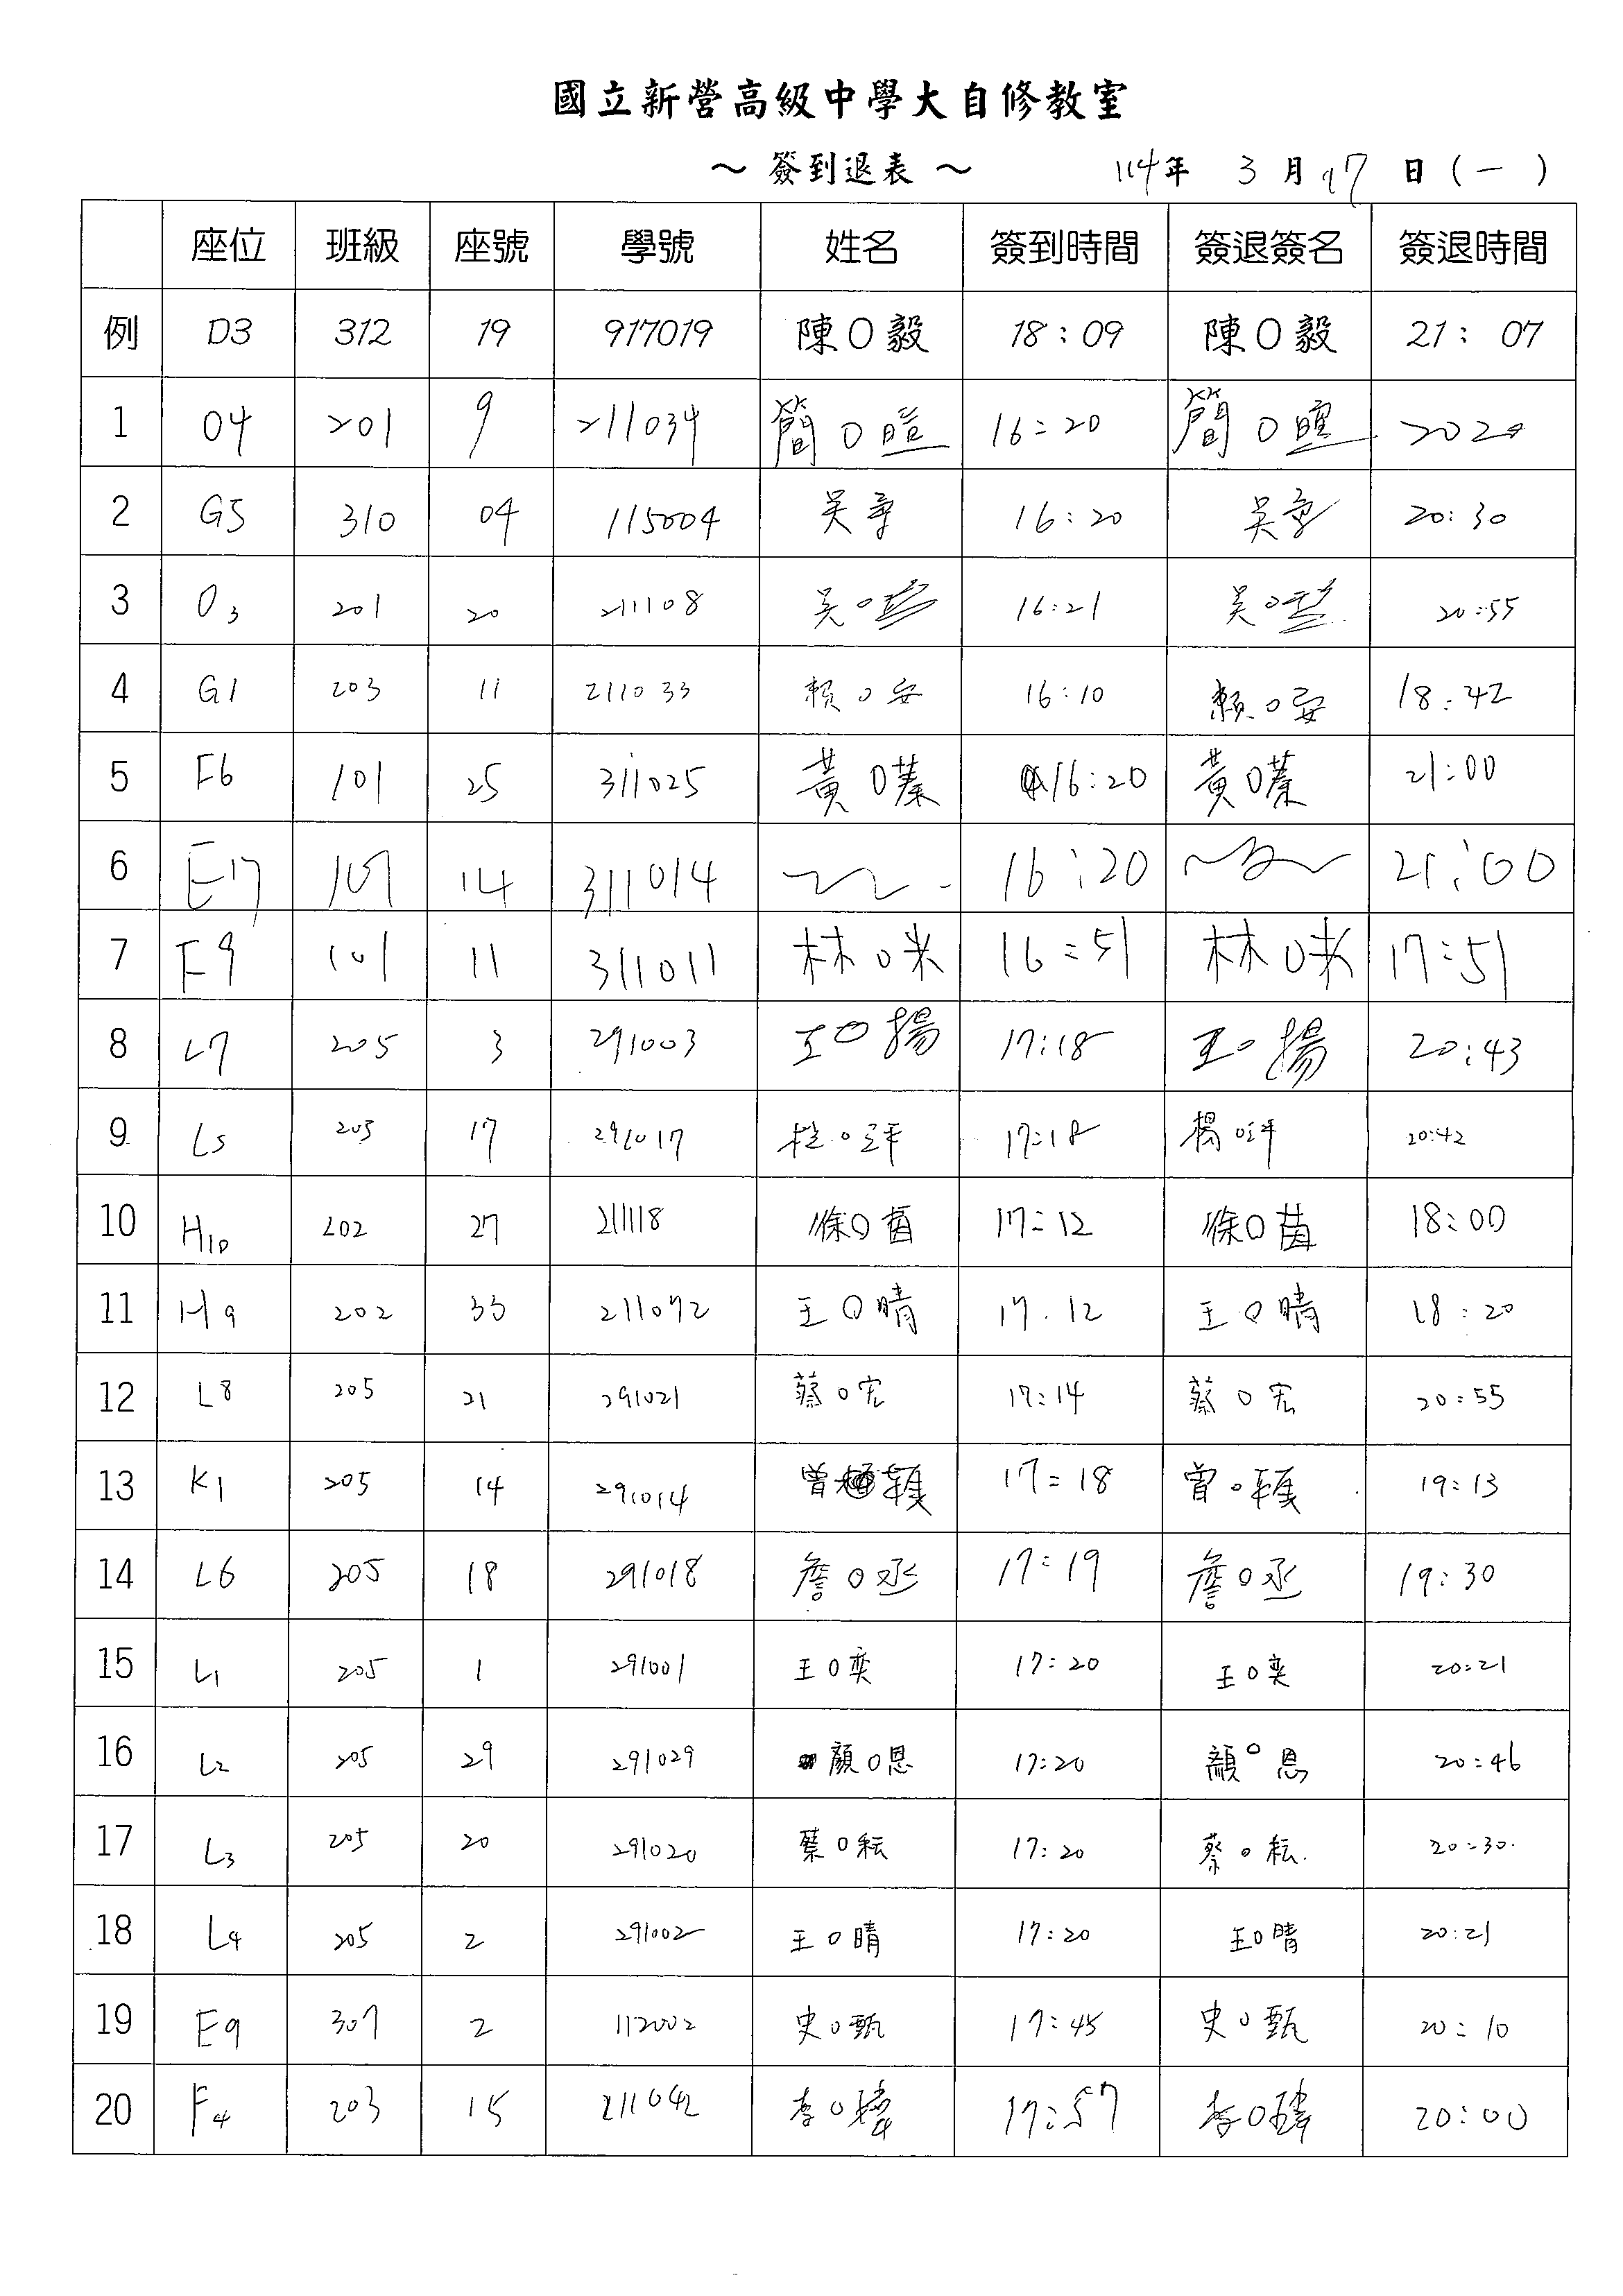 國立新營高級中學大自修教室
～ 簽到退表 ～ 114年 3月17日(一)
座位 班級 座號 學號 姓名 簽到時間 簽退簽名 簽退時間
例 D3 312 19 917019 陳O毅 18:09 陳O毅 21:07
1 O4 201 9 211034 簡O暄 16:20 簡O暄 2020
2 G5 310 04 115004 吳 16:20 吳 20:30
3 O3 201 20 211108 吳O 16:21 吳O 20:55
4 G1 203 11 211033 賴O安 16:10 賴O安 18:42
5 F6 101 25 311025 黃O蓁 16:20 黃O蓁 21:00
6 E17 101 14 311014 16:20 21:00
7 F9 101 11 311011 林O 16:51 林O 17:51
8 L7 205 3 291003 王O揚 17:18 王O揚 20:43
9 L5 205 17 291017 17:18 楊O 20:42
10 H10 202 27 211118 徐O茵 17:12 徐O茵 18:00
11 H9 202 33 211072 王O晴 17.12 王O晴 18:20
12 L8 205 21 291021 蔡O宏 17:14 蔡O宏 20:55
13 K1 205 14 291014 曾 17:18 曾O 19:13
14 L6 205 18 291018 詹O丞 17:19 詹O丞 19:30
15 L1 205 1 291001 王O奕 17:20 王O奕 20:21
16 L2 205 29 291029 顏O恩 17:20 顏O恩 20:46
17 L3 205 20 291020 蔡O耘 17:20 蔡O耘 20:30
18 L4 205 2 291002 王O晴 17:20 王O晴 20:21
19 E9 307 2 112002 史O甄 17:45 史O甄 20:10
20 F4 203 15 211042 李O 17:57 李O 20:00